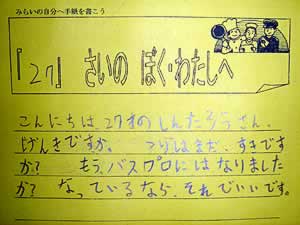 みらいの自分へ手紙を書こう
「27」さいの ぼく・わたしへ
こんにちは、27才のしんたろうさん。
げんきですか。 つりはまだ、すきです
か? もう、バスプロにはなりました
か? なっているなら、それでいいです。